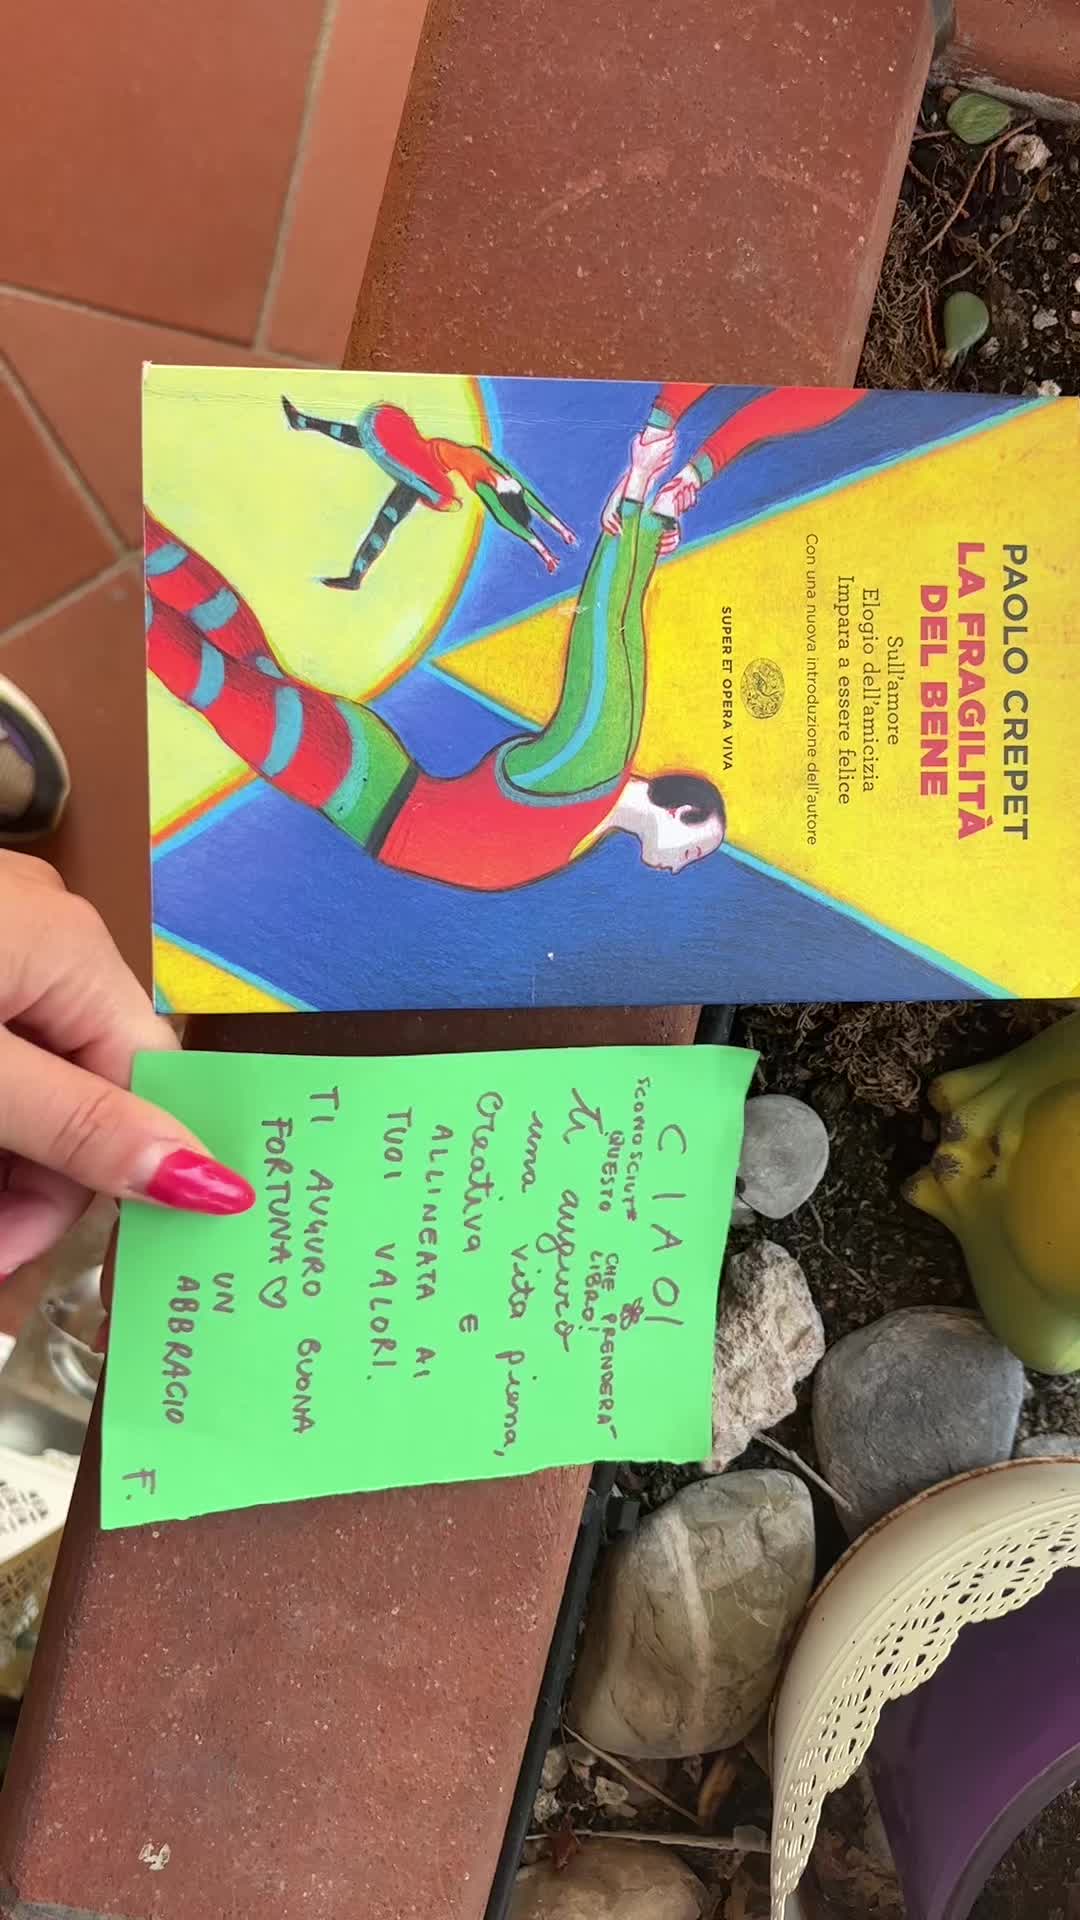 PAOLO CREPET
LA FRAGILITÀ
DEL BENE
Sull'amore
Elogio dell'amicizia
Impara a essere felice
Con una nuova introduzione dell'autore
SUPER ET OPERA VIVA
CIAO!
SCONOSCIUT* CHE PRENDERA'
QUESTO LIBRO!
ti auguro
una vita piena,
creativa E
ALLINEATA AI
TUOI VALORI.
TI AUGURO BUONA
FORTUNA ♡
UN
ABBRACIO
F.